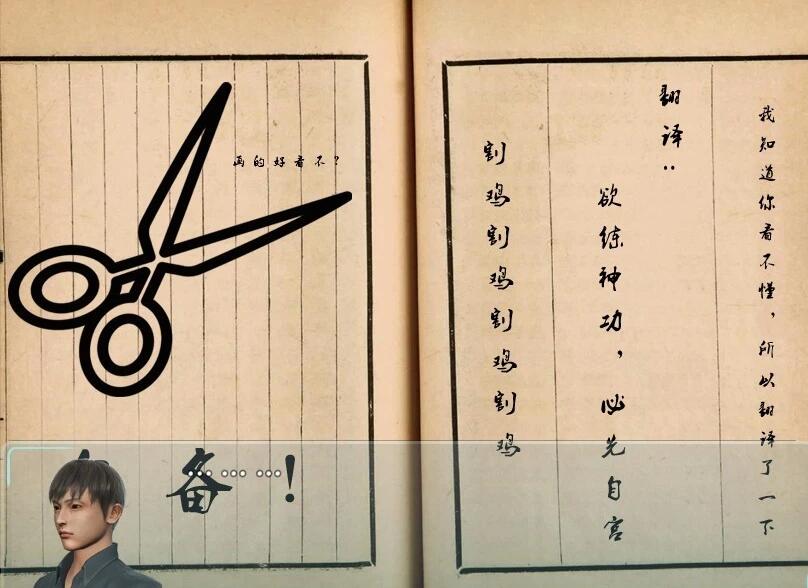 我知道你看不懂，所以翻译了一下
翻译：
欲练神功，必先自宫
割鸡割鸡割鸡割鸡
画的好看不？
备！
… … …